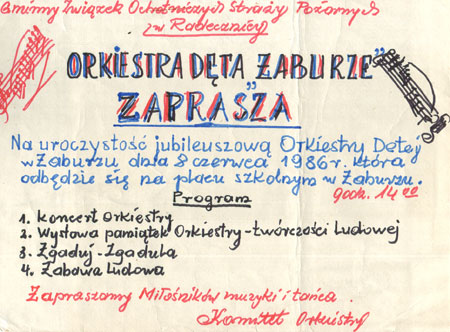 Gminny Związek Ochotniczych Straży Pożarnych
w Radecznicy
ORKIESTRA DĘTA „ZABURZE”
ZAPRASZA
Na uroczystość jubileuszową Orkiestry Dętej
w Zaburzu dnia 8 czerwca 1986 r. która
odbędzie się na placu szkolnym w Zaburzu.
godz. 14 00
Program
1. Koncert Orkiestry
2. Wystawa pamiątek Orkiestry - twórczości Ludowej
3. Zgaduj - Zgadula
4. Zabawa Ludowa
Zapraszamy Miłośników muzyki i tańca.
Komitet Orkiestry